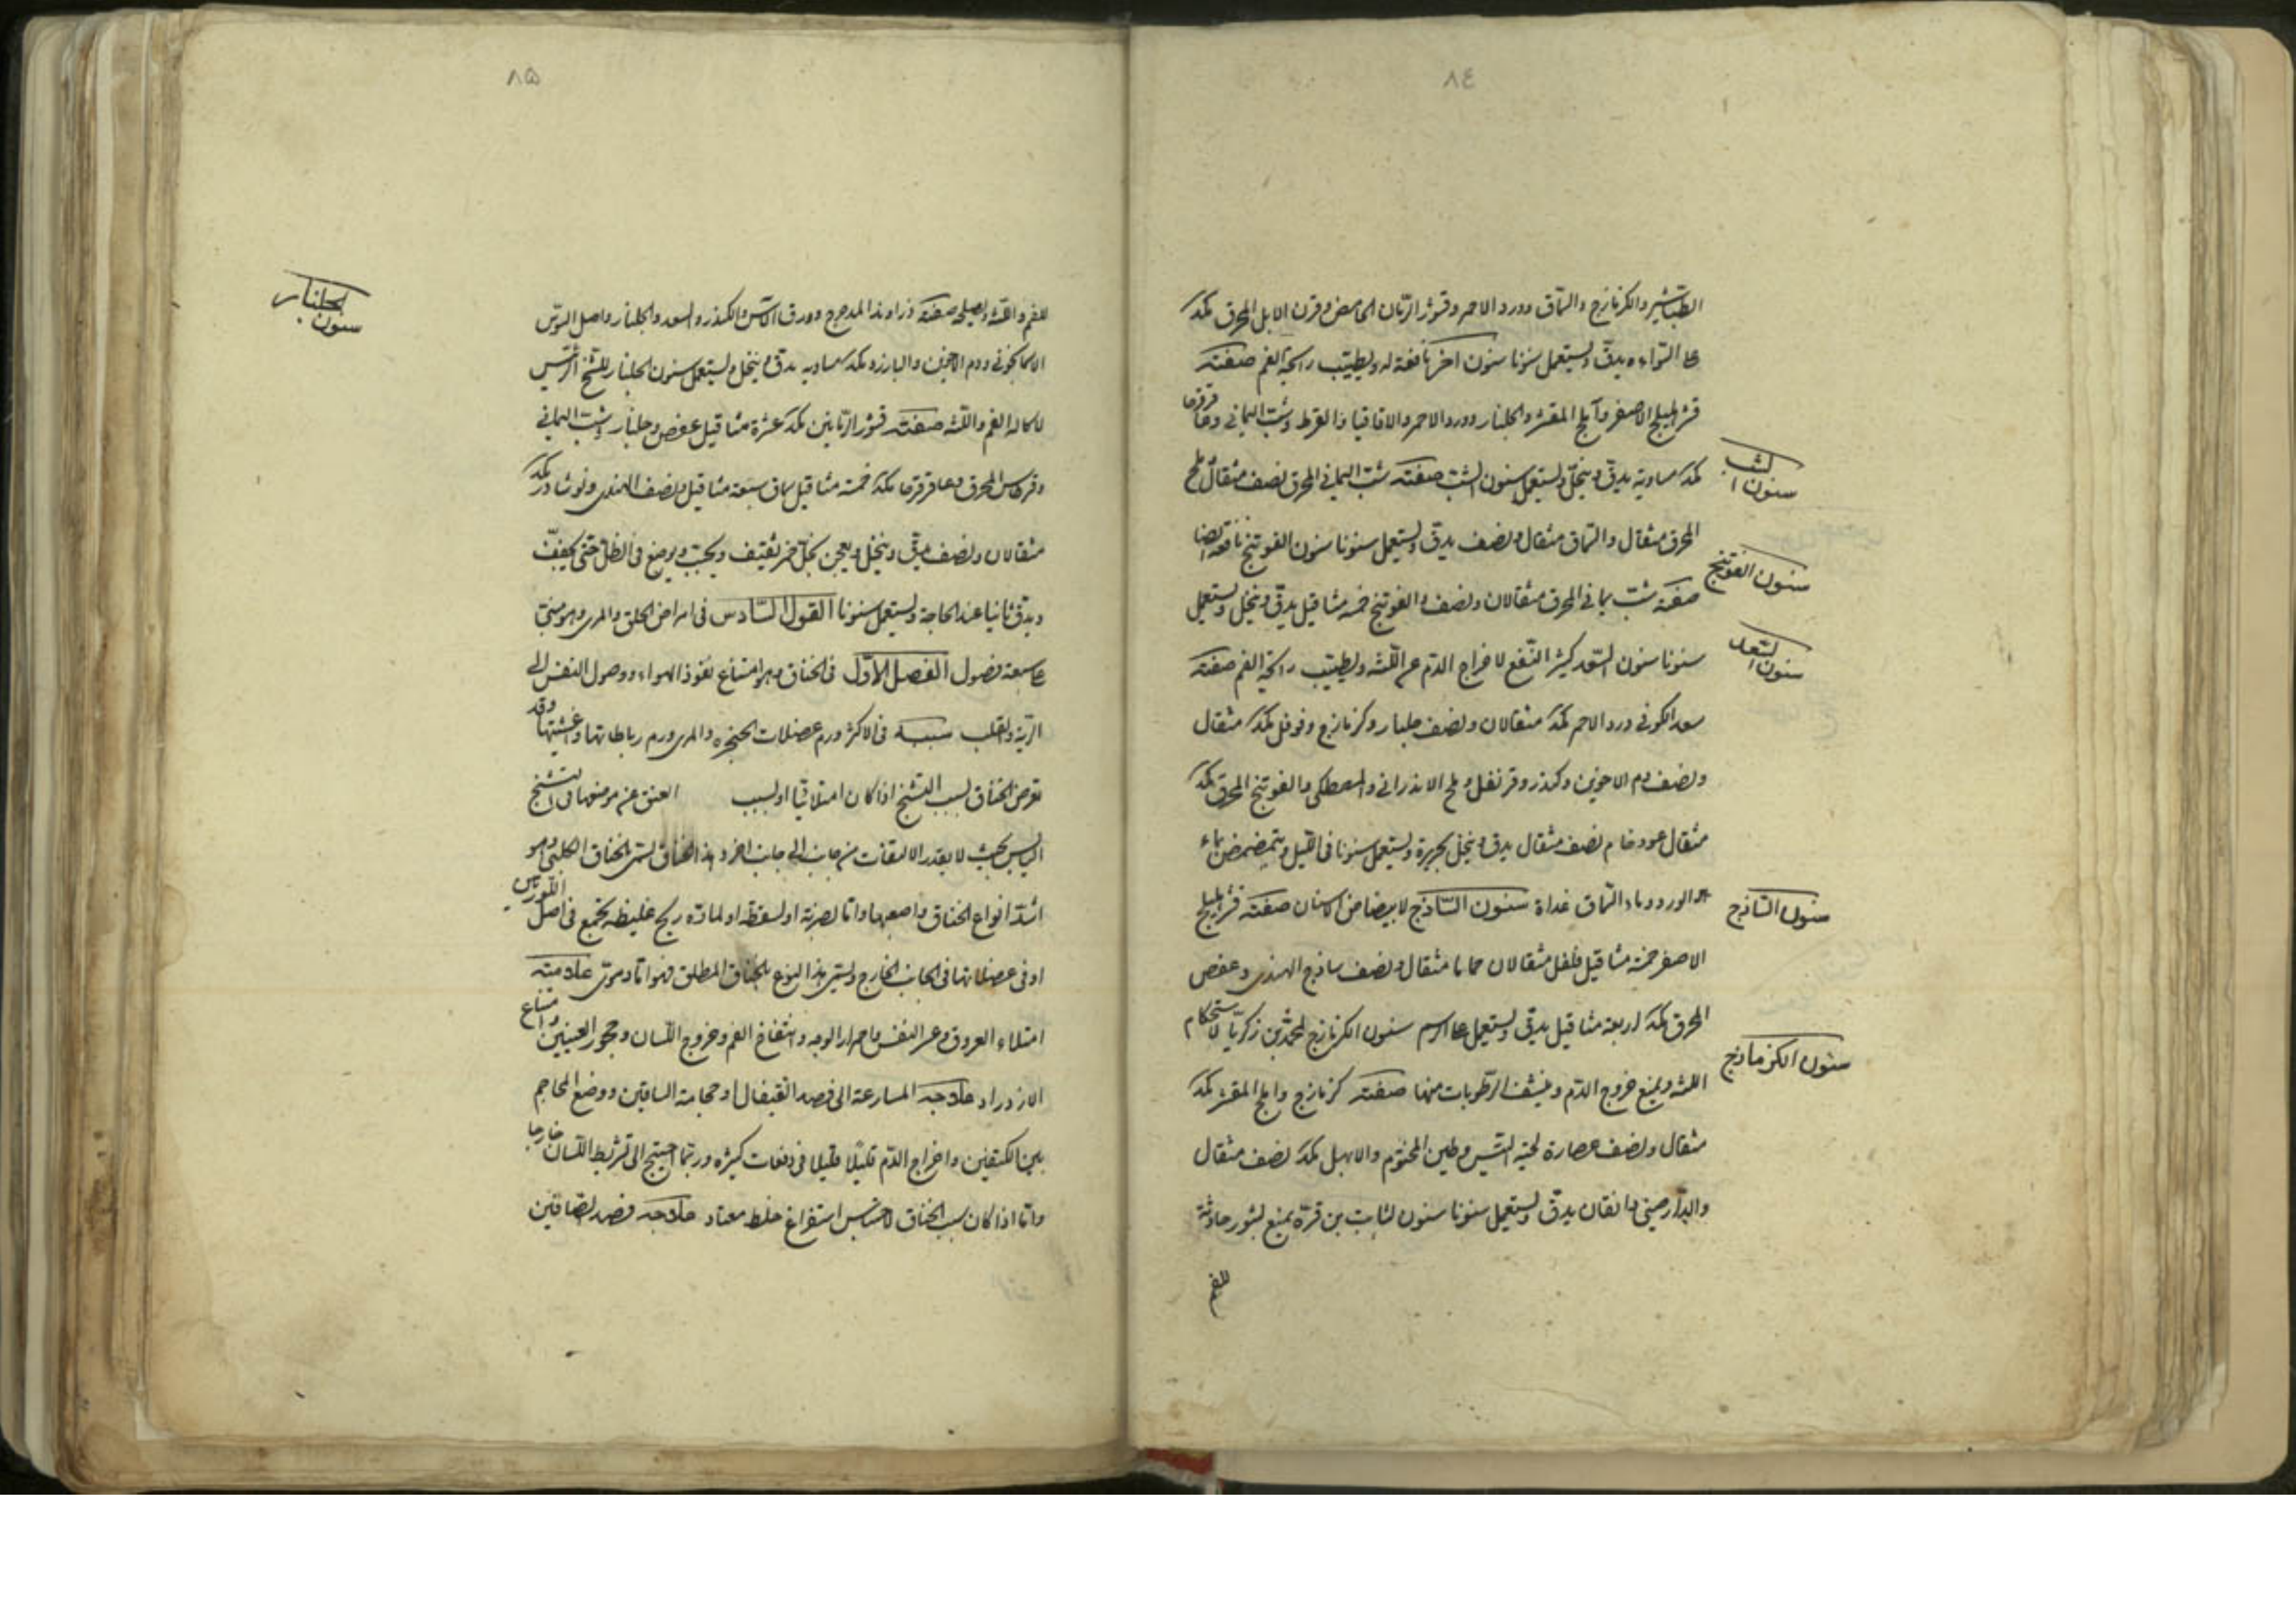 ٨٤
الطباشير والكزمازج والسماق وورد الاحمر وقشور الرمان الحامض وقرن الابل المحرق مكد
علا السواء يدق ويستعمل سنونا سنون اخر نافعة له ويطيب رايحة الفم صفته
قشر هليلج الاصفر وآملج المقشر والجلنار وورد الاحمر والاقاقيا والقرط وشب اليماني وعاقرقرحا
سنون الشب
مكد مساوية يدق وينخل ويستعمل سنون الشب صفته شب اليماني المحرق نصف مثقال ملح
المحرق مثقال والسماق مثقال ونصف يدق ويستعمل سنونا سنون الفوتنج نافعة ايضا
سنون الفوتنج
صفته شب يماني المحرق مثقالان ونصف والفوتنج خمسه مثاقيل يدق وينخل ويستعمل
سنون السعد
سنونا سنون السعد كثير النفع لاخراج الدم عن اللثه ويطيب رايحة الفم صفته
سعد الكوفي ورد الاحمر مكد مثقالان ونصف جلنار وكزمازج وفوفل مكد مثقال
ونصف دم الاخوين وكندر وقرنفل وملح الاندراني والمصطكي والفوتنج المحرق مكد
مثقال عود خام نصف مثقال يدق وينخل بحريرة ويستعمل سنونا في الليل ويتمضمض بماء
سنون الساذج
الورد وماء السماق غداة سنون الساذج لابيضاض الاسنان صفته قشر هليلج
الاصفر خمسة مثاقيل فلفل مثقالان حماما مثقال ونصف ساذج الهندي وعفص
المحرق مكد اربعة مثاقيل يدق ويستعمل علا الرسم سنون الكزمازج لمحمد بن زكريا لاستحكام
سنون الكزمازج
اللثه ويمنع خروج الدم وينشف الرطوبات منها صفته كزمازج واملج المقشر مكد
مثقال ونصف عصارة لحية التيس وطين المختوم والابهل مكد نصف مثقال
والدارصيني دانقان يدق ويستعمل سنونا سنون لثابت بن قرة يمنع بثور حادثة
للفم
٨٥
سنون الجلنار
للفم واللثه ويصلح صفته زراوند المدحرج وورق الآس والكندر والسعد والجلنار واصل السوس
الاسمانجوني ودم الاخوين والبارزد مكد مساويه يدق وينخل ويستعمل سنون الجلنار للشيخ الرئيس
لاكالة الفم واللثه صفته قشور الرمانين مكد عشرة مثاقيل عفص وجلنار وشب اليماني
وقرطاس المحرق وعاقرقرحا مكد خمسة مثاقيل سماق سبعة مثاقيل ونصف الهندي ونوشادر مكد
مثقالان ونصف يدق وينخل ويعجن بخل خمر ثقيف ويحبب ويوضع في الظل حتى يجفف
ويدق ثانيا عند الحاجة ويستعمل سنونا القول السادس في امراض الحلق والمري وهو مبني
علا سبعة فصول الفصل الاول في الخناق وهو امتناع نفوذ الهواء ووصول النفس الى
الرية والقلب سببه في الاكثر ورم عضلات الحنجره والمري ورم رباطاتها واغشيتها وقد
تعرض الخناق لسبب التشنج اذا كان امتلائيا او لسبب العنق عن موضعها في التشنج
اليابس بحيث لا يقدر الالتفات من جانب الى جانب اخر وهذا الخناق يسمى الخناق الكلبي وهو
اشد انواع الخناق واصعبها واما لضربة او لسقطة او لمادة ريح غليظه تجتمع في اصل اللوزتين
او في عضلاتها في الجانب الخارج ويسمى هذا النوع بالخناق المطلق فهو اما دموي علامته
امتلاء العروق وعسر النفس واحمرار الوجه وانتفاخ الفم وخروج اللسان وجحوظ العينين وامتناع
الازدراد علاجه المسارعة الى فصد القيفال او حجامة الساقين ووضع المحاجم
بين الكتفين واخراج الدم قليلا قليلا في دفعات كثيره وربما احتيج الى تشريط اللسان خارجا
واما اذا كان سبب الخناق لاحتباس استفراغ خلط معتاد علاجه فصد الصافين